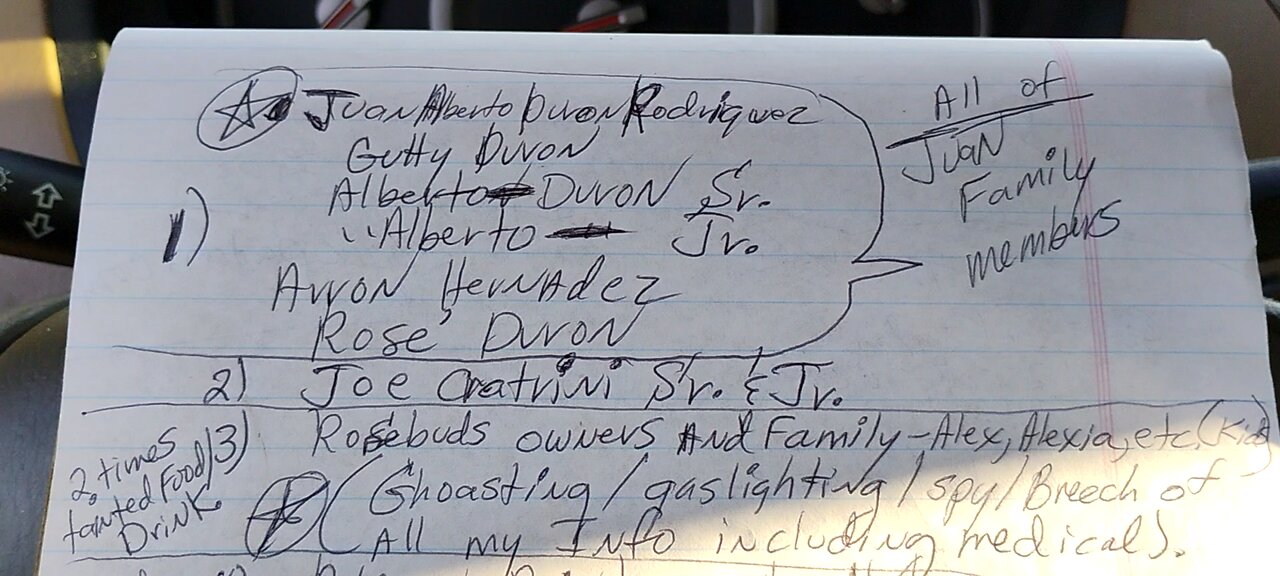 Juan Alberto Duron Rodriquez
Gutty Duron
Alberto Duron Sr.
1) "Alberto Jr.
Arron Hernadez
Rose' Duron
All of
Juan
Family
members
2) Joe Cratrini Sr. & Jr.
3) Rosebuds owners And Family-Alex, Alexia, etc. (Kids)
2. times
tainted Food/
Drink.
(Ghoasting/gaslighting/spy/Breech of
All my Info including medical).